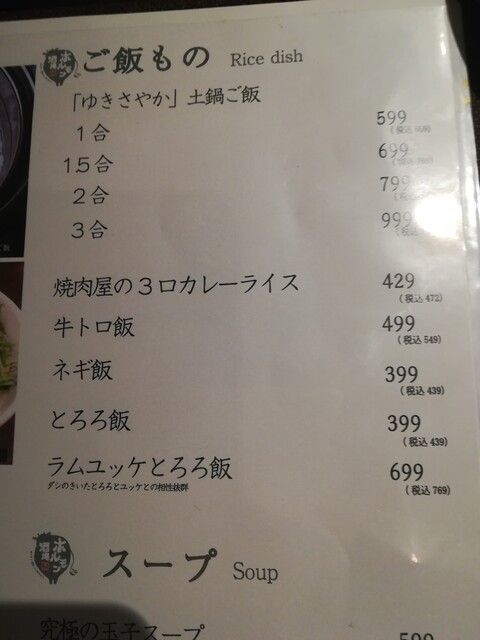 ホルモン酒場
ご飯もの Rice dish
「ゆきさやか」土鍋ご飯
1合 599
1.5合 699
2合 799
3合 999
焼肉屋の3口カレーライス 429
(税込 472)
牛トロ飯 499
(税込 549)
ネギ飯 399
(税込 439)
とろろ飯 399
(税込 439)
ラムユッケとろろ飯 699
ダシのきいたとろろとユッケとの相性抜群 (税込 769)
ホルモン酒場
スープ Soup
究極の玉子スープ 599